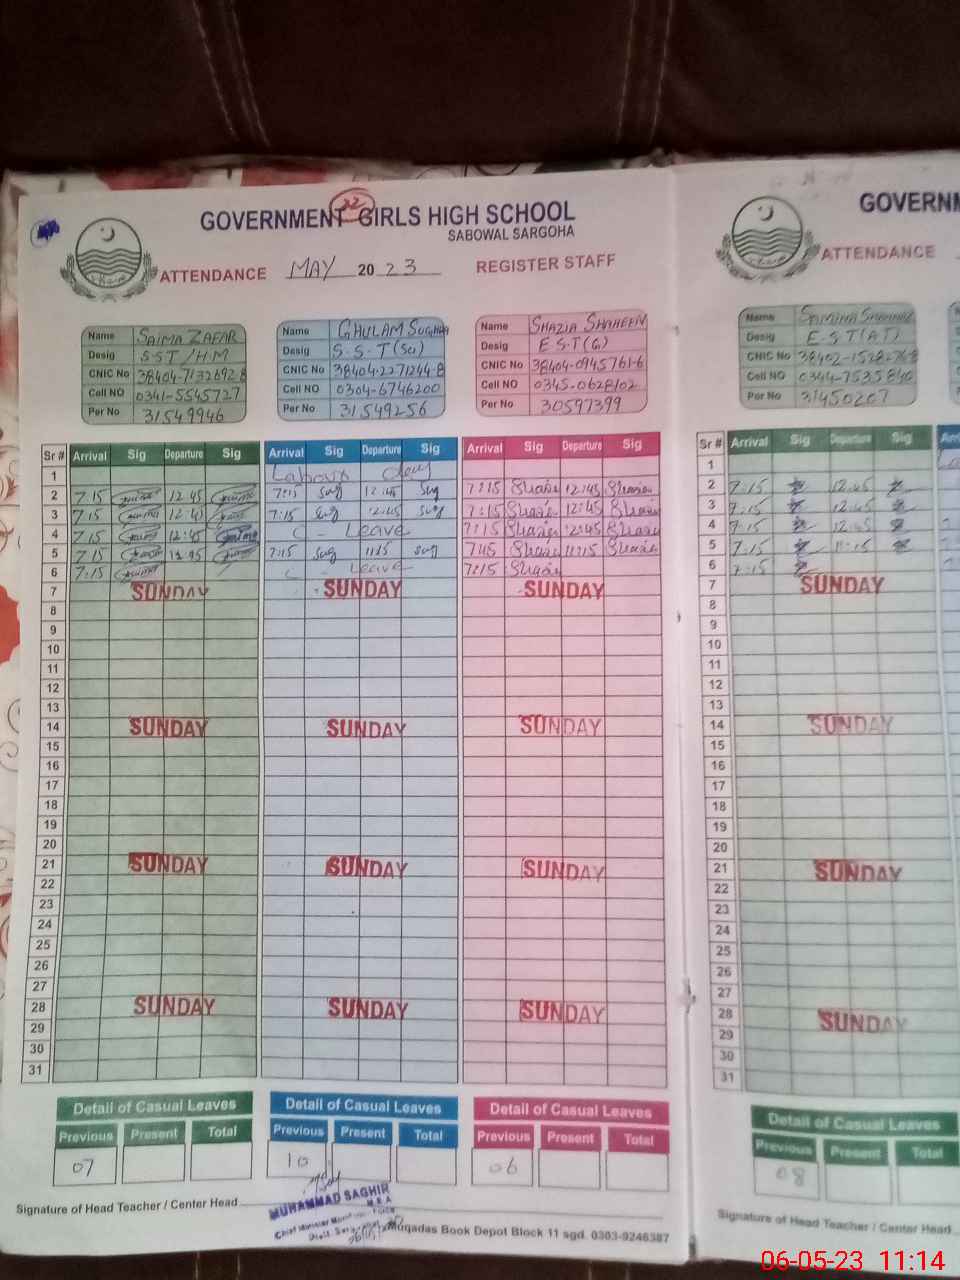 22
GOVERNMENT GIRLS HIGH SCHOOL
SABOWAL SARGOHA
ATTENDANCE MAY 2023 REGISTER STAFF
Name SAIMA ZAFAR
Desig SST/HM
CNIC No 38404-7132692-8
Cell NO 0341-5545727
Per No 31549946
Name GHULAM SUGHRA
Desig S.S.T(Sci)
CNIC No 38404-2271244-8
Cell NO 0304-6746200
Per No 31549256
Name SHAZIA SHAHEEN
Desig E.S.T(G)
CNIC No 38404-0945761-6
Cell NO 0345-0628102
Per No 30597399
Sr # Arrival Sig Departure Sig Arrival Sig Departure Sig Arrival Sig Departure Sig
1 Labour day
2 7:15 12:45 7:15 Sug 12:45 Sug 7:15 Shazia 12:45 Shazia
3 7:15 12:45 7:15 Sug 12:45 Sug 7:15 Shazia 12:45 Shazia
4 7:15 12:45 C - Leave 7:15 Shazia 12:45 Shazia
5 7:15 7:15 Sug 11:15 Sug Shazia 11:15 Shazia
6 7:15 C - Leave 7:15 Shazia
7 SUNDAY SUNDAY SUNDAY
8
9
10
11
12
13
14 SUNDAY SUNDAY SUNDAY
15
16
17
18
19
20
21 SUNDAY SUNDAY SUNDAY
22
23
24
25
26
27
28 SUNDAY SUNDAY SUNDAY
29
30
31
Detail of Casual Leaves Detail of Casual Leaves Detail of Casual Leaves
Previous Present Total Previous Present Total Previous Present Total
07 10 06
Signature of Head Teacher / Center Head
MUHAMMAD SAGHIR
M.E.A
Chief Minister
Muqadas Book Depot Block 11 sgd. 0303-9246387
GOVERNM
ATTENDANCE
Name SAMINA
Desig E.S.T(AT)
CNIC No
Cell NO 0344-7535840
Per No 31450207
Sr # Arrival Sig Departure Sig
1
2 7:15 12:45
3 7:15 12:45
4 7:15 12:45
5 7:15 11:15
6 7:15
7 SUNDAY
8
9
10
11
12
13
14 SUNDAY
15
16
17
18
19
20
21 SUNDAY
22
23
24
25
26
27
28 SUNDAY
29
30
31
Detail of Casual Leaves
Previous Present Total
08
Signature of Head Teacher / Center Head
06-05-23 11:14